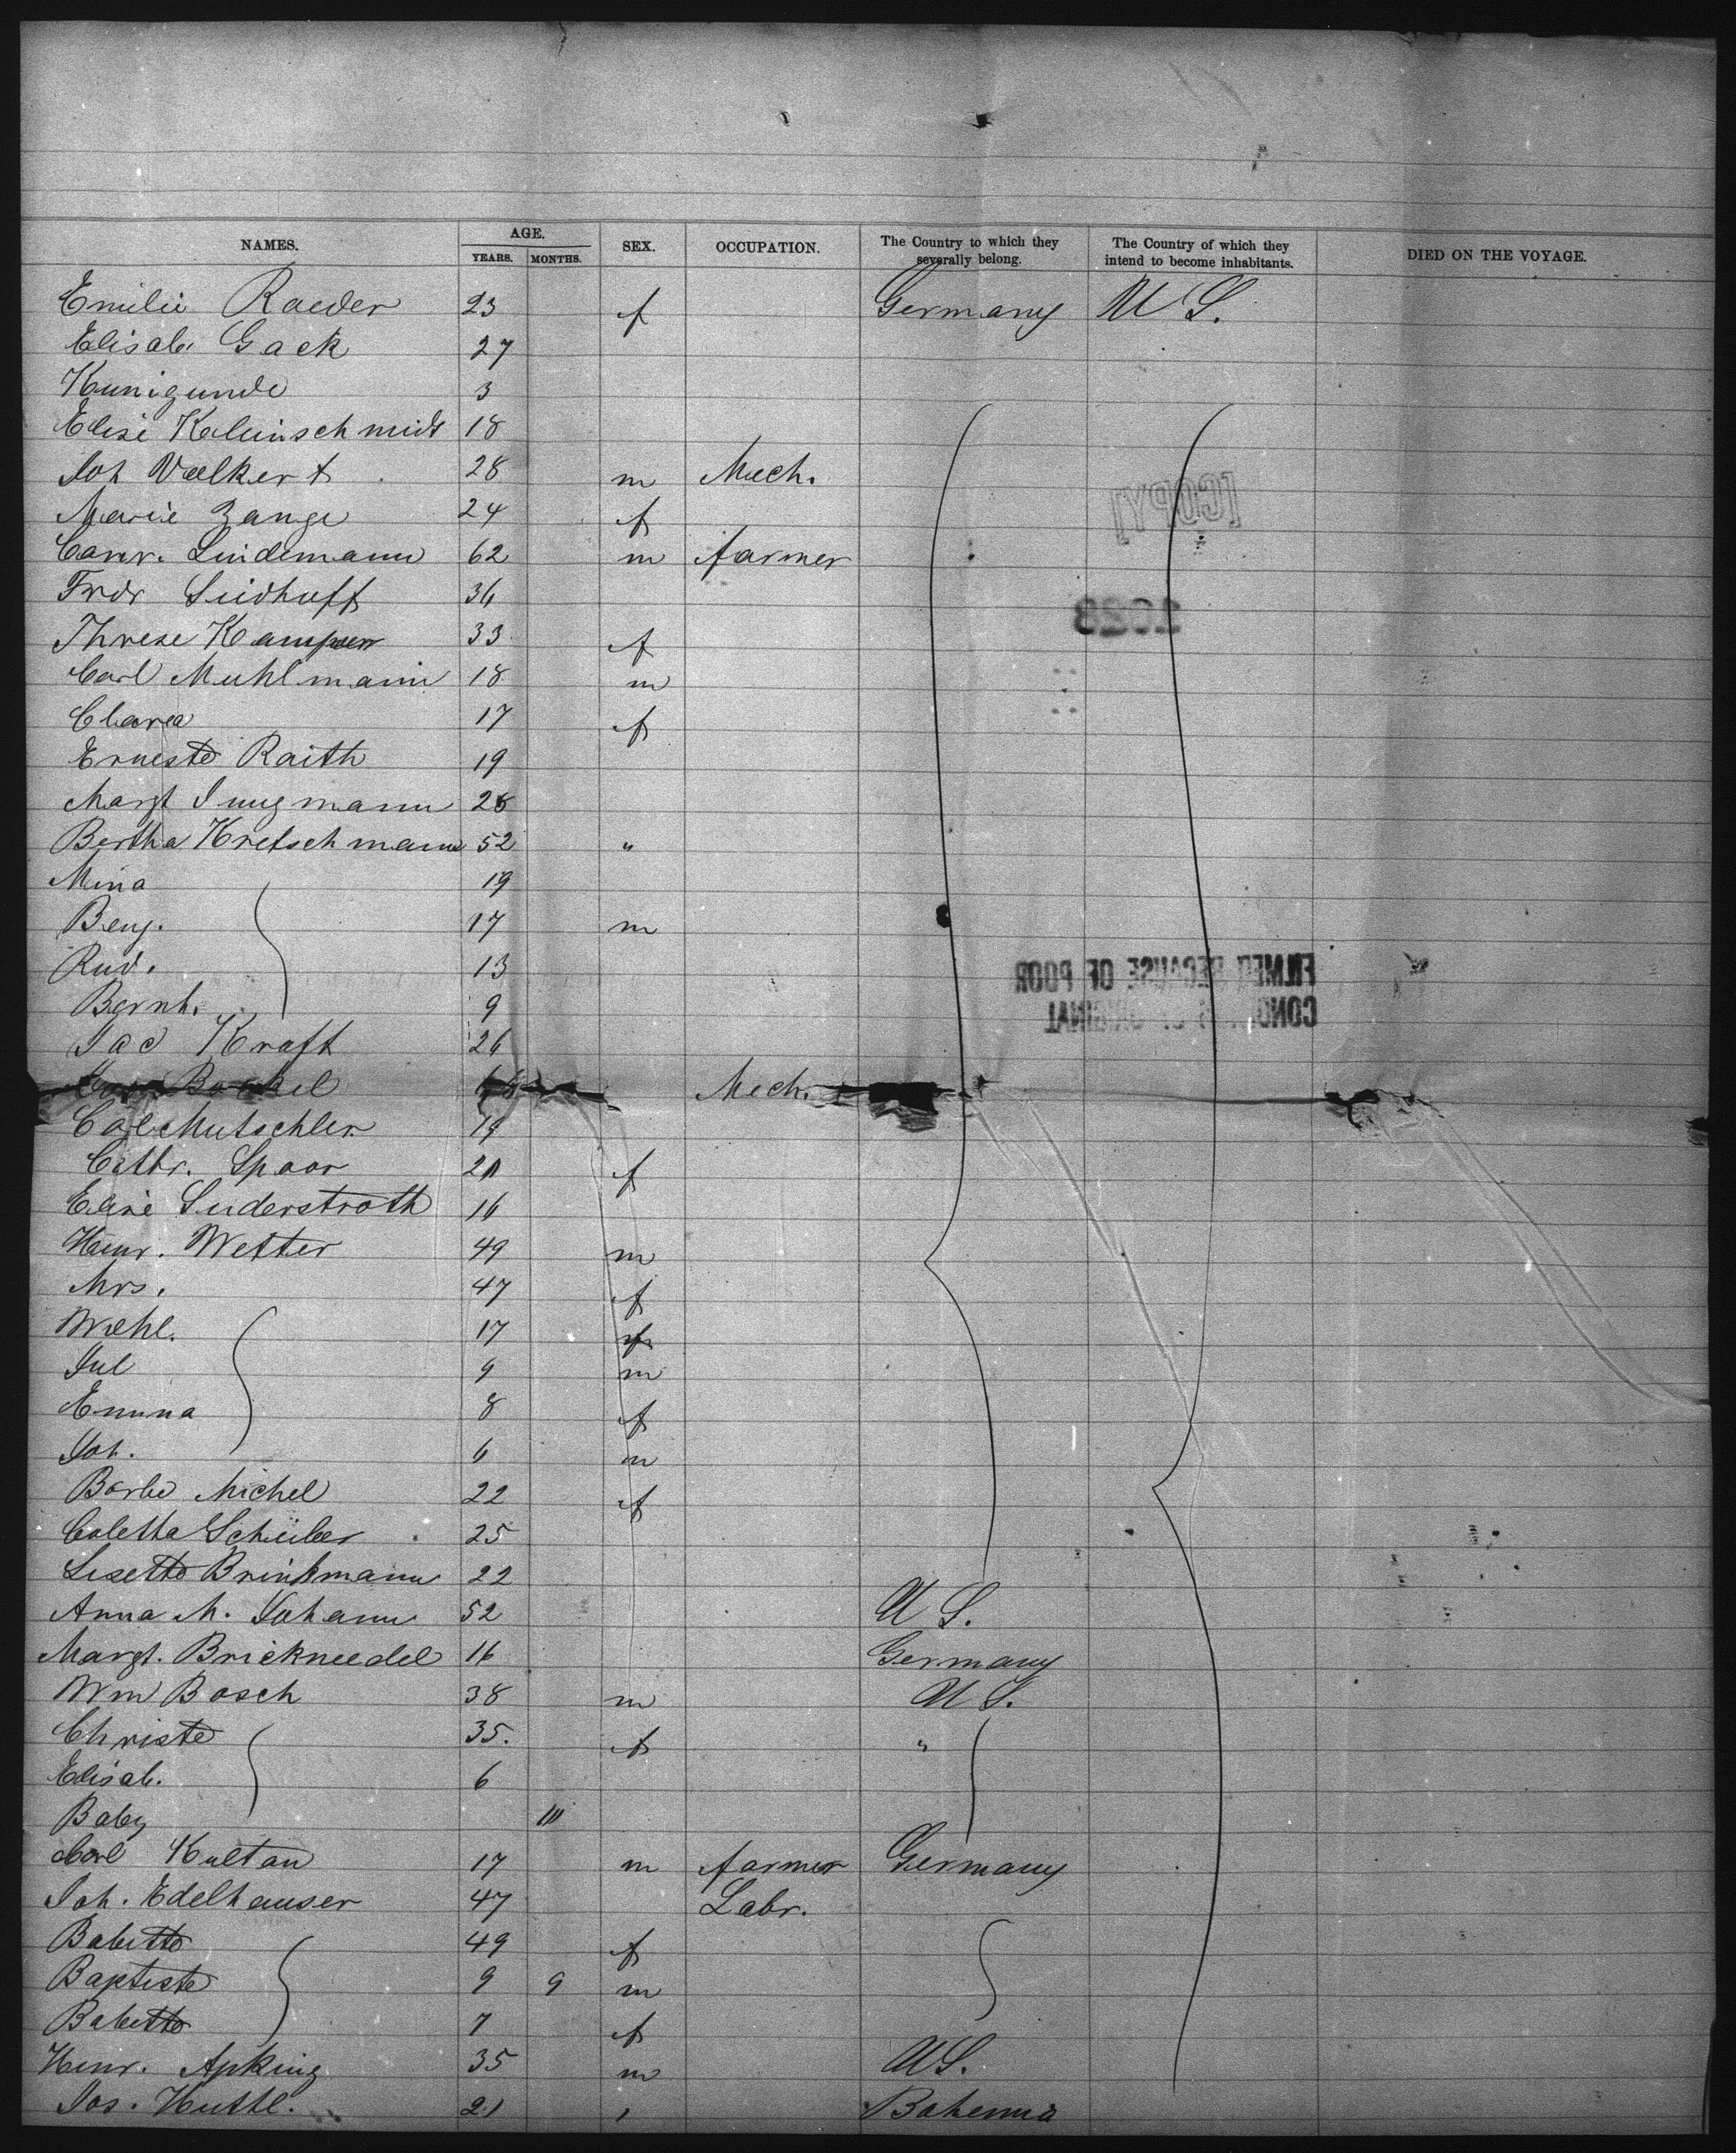 NAMES. AGE. SEX. OCCUPATION. The Country to which they severally belong. The Country of which they intend to become inhabitants. DIED ON THE VOYAGE.
YEARS. MONTHS.
Emilie Roeder 23 f Germany U S.
Elisab. Gack 27
Kunigunde 3
Elise Kleinschmidt 18
Joh Volkert 28 m Mech.
Marie Zange 24 f
[COPY]
Conr. Lindemann 62 m farmer
Frdr Siedhoff 36
2028
Threse Kamper 33 f
Carl Muhlmann 18 m
Clara 17 f
Ernesto Raith 19
Margt Jungmann 28
Bertha Kretschmann 52 "
Mina 19
Benj. 17 m
Rud. 13
FILMED BECAUSE OF POOR
Bernh. 9
ORIGINAL
Jac Kraft 26
Mech.
Mutschler 19
Cathr. Spoor f
Elise Suderstroth 16
Heinr. Wetter 49 m
Mrs. 47 f
17 f
Jul 9 m
Emma 8 f
Joh. 6 m
Barbe Michel 22 f
Coletta 25
Lisette Brinkmann 22
Anna M. Johann 52 U S.
Margt. Brickneedel 16 Germany
Wm Bosch 38 m U S.
Christe 35. f "
Elisab. 6
Baby
Carl 17 m farmer Germany
Joh. Edelhauser 47 Labr.
Babette 49 f
Baptiste 9 9 m
Babette 7 f
Heinr. Apking 35 m U S.
Jos. 21 Bohemia